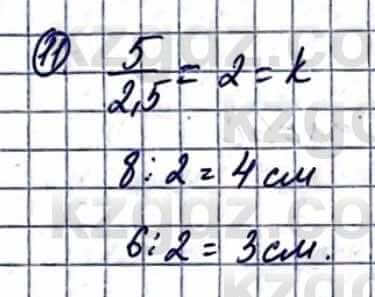 11) 5/2,5 = 2 = k
8 : 2 = 4 см
6 : 2 = 3 см.